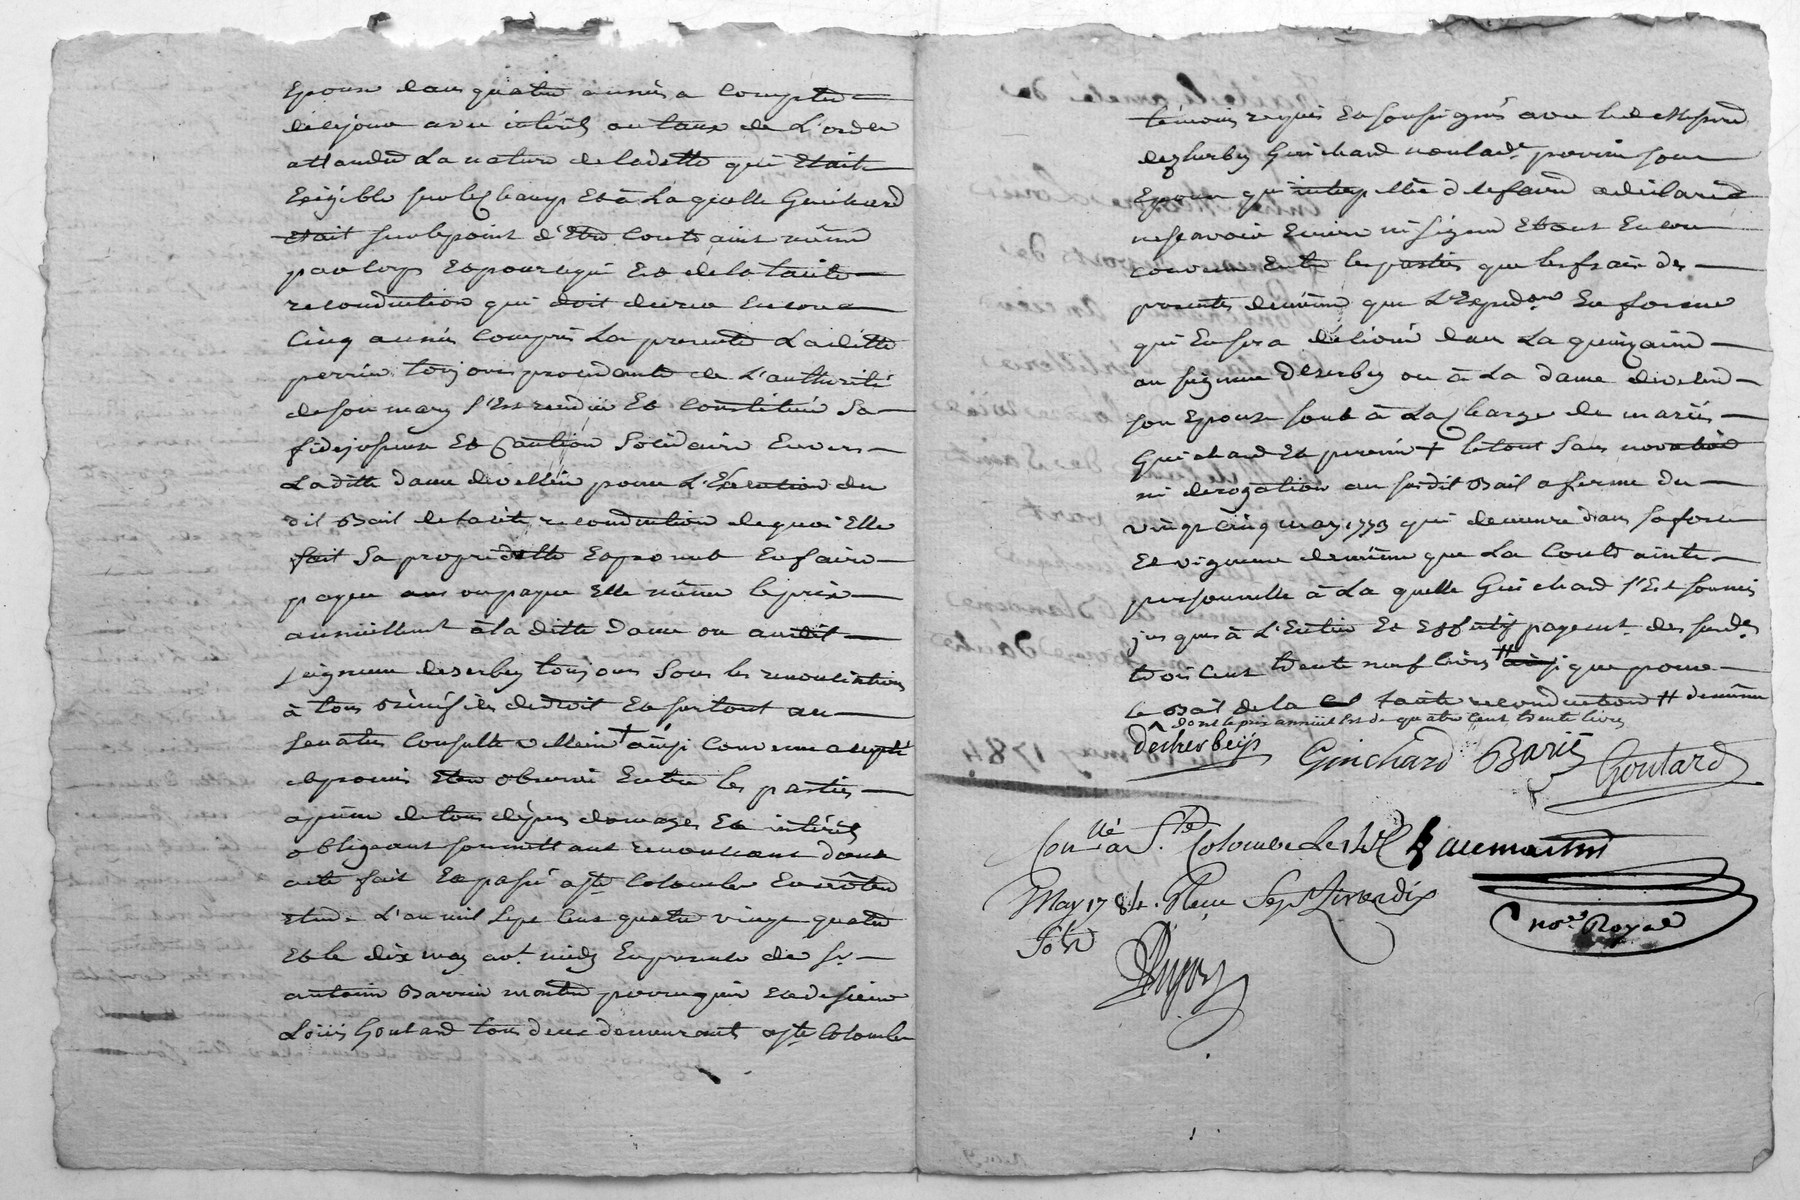 Epouse dans quatre années a compter
dece jour avec intérêts au taux de L'ordce
attandu La nature de ladette qui Etait
Exigible sur le Champ Et à Laquelle Guichard
etait sur le point d'Etre Contraint même
par corps Et pour ce qui Est de la tacite
reconduction qui doit durer Encore
Cinq années Compris La presente Laditte
perrin toujours procedante de L'authorité
de son mary S'Est rendüe Et Constituée Sa
fidejusseuse Et Caution Solidaire Envers
Laditte dame de vellein pour L'Execution du
dit Bail de tacite reconduction de quoi Elle
fait Sa propre dette Et promet En faire
payer ou payer Elle même le prix
annuellement à la ditte dame ou audit
seigneur desherbey toujours Sous les renonciations
à tous Bénéfices de droit Et surtout au
senatus Consulte velleien + ainsi Convenu accepté
Et promis Etre observé Entre les parties
a peine de tous dépens domages Et intérêts
obligeant soumettant renonceant dont
acte fait Et passé a Ste Colombe En nôtre
etude L'an mil Sept Cent quatre vingt quatre
Et le dix may avt. midy En presence de Sr.
antoine Barrier maitre perruquier Et de sieur
Loüis Goutard tous deux demeurants a Ste Colombe
témoins requis Et soussignés avec led.
desherbey Guichard non lade. perrin son
Epouse qui interpellée de le faire a declaré
ne scavoir Ecrire ni signer Etant Encore
convenu Entre les parties que les frais des
presentes de même que L'Expedon. En forme
qui En sera délivré dans La quinzaine
au seigneur Desherbey ou à La dame de vellein
son Epouse sont à La Charge de mariés
Guichard Et perrin + le tout Sans novation
ni derogation au susdit Bail a ferme du
vingt Cinq may 1773 qui demeure dans sa force
Et vigueur de même que La Contrainte
personnelle à La quelle Guichard s'Est soumis
jusques à L'Entier Et Effectif payemt. des susds.
trois Cent trente neuf livres # ainsi que pour
le Bail de la tacite reconduction # de même
^ dont le prix annuel Est de quatre Cent trente livres
desherbeijs Guichard Barié Goutard
Conllé a Ste. Colombe Le 14
May 1784. Reçu Sept livres dix
Jaccmartin
nore. Royal
du 10 may 1784